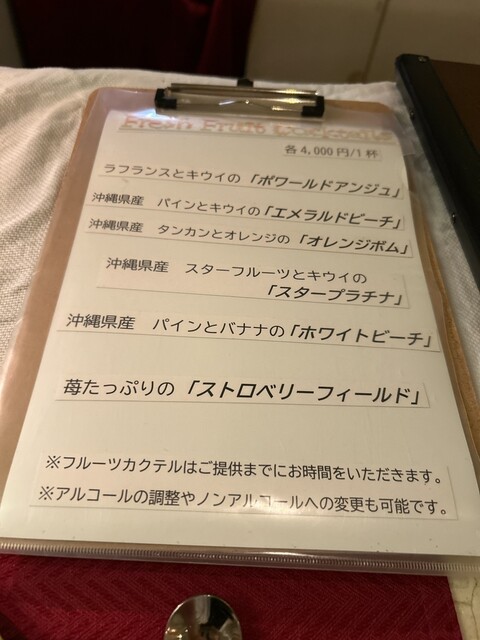 Fresh Fruit Cocktails
各4,000円/1杯
ラフランスとキウイの「ポワールドアンジュ」
沖縄県産 パインとキウイの「エメラルドビーチ」
沖縄県産 タンカンとオレンジの「オレンジボム」
沖縄県産 スターフルーツとキウイの
「スタープラチナ」
沖縄県産 パインとバナナの「ホワイトビーチ」
苺たっぷりの「ストロベリーフィールド」
※フルーツカクテルはご提供までにお時間をいただきます。
※アルコールの調整やノンアルコールへの変更も可能です。